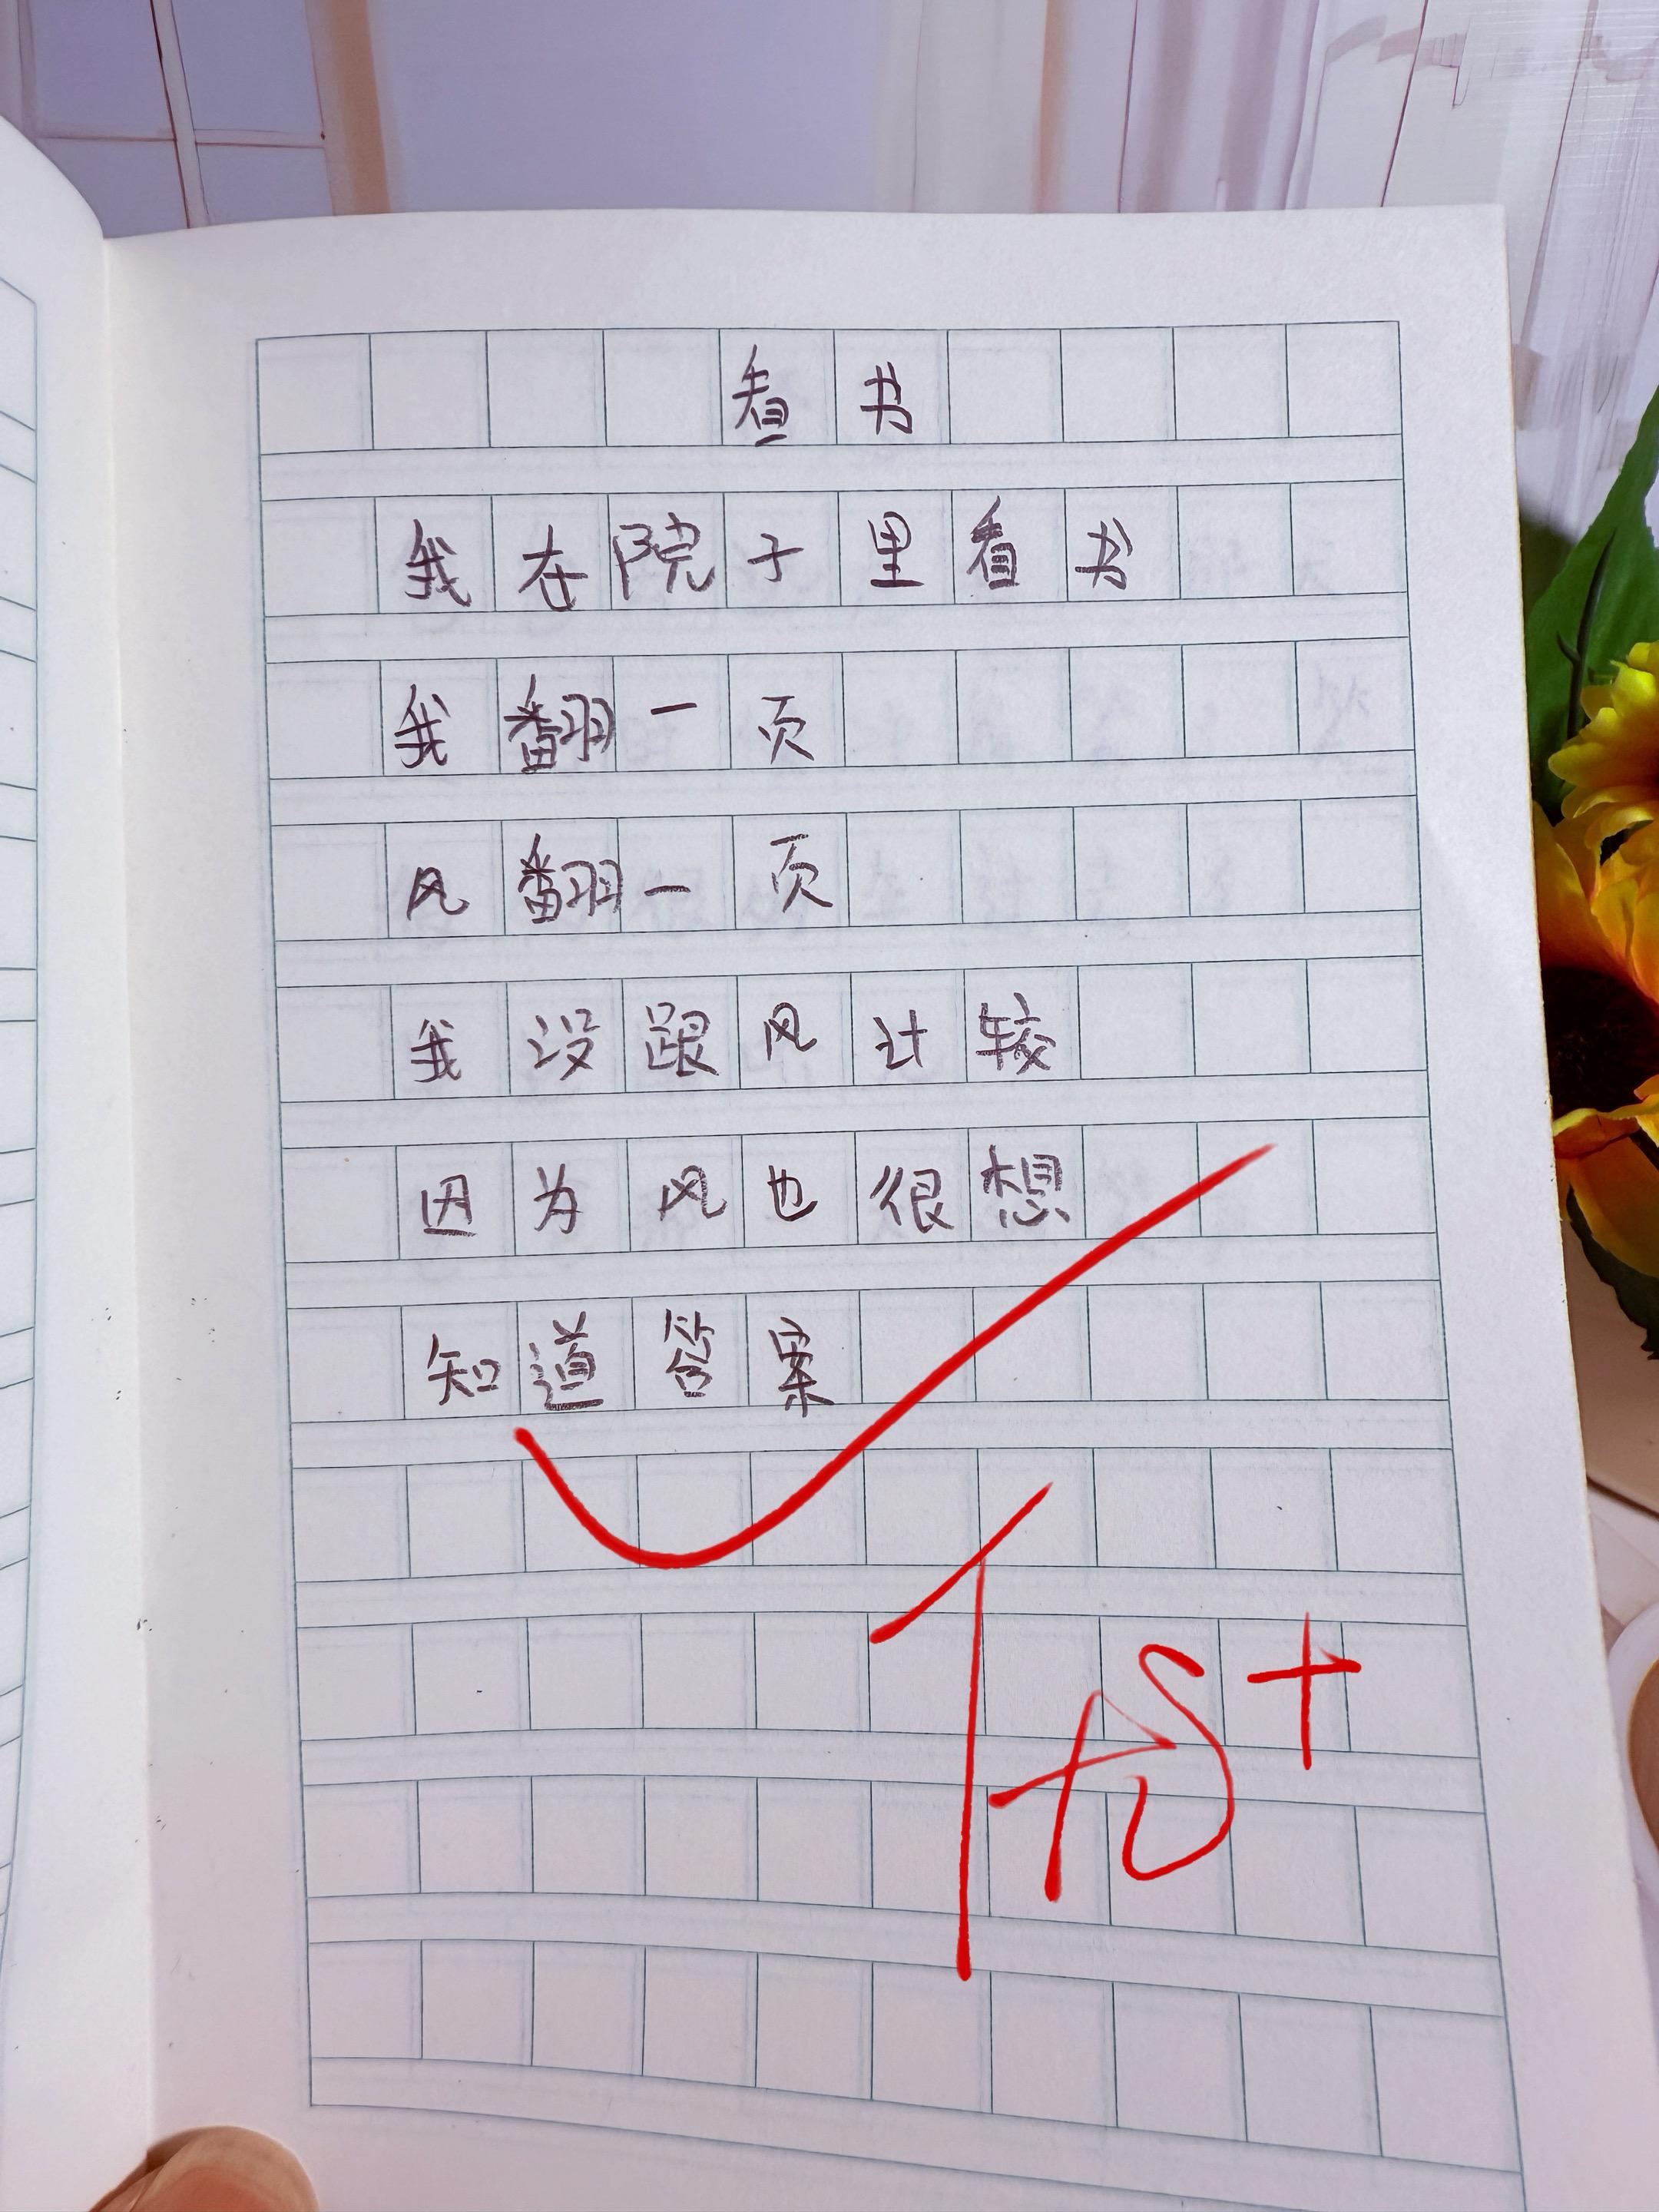 看书
我在院子里看书
我翻一页
风翻一页
我没跟风计较
因为风也很想
知道答案